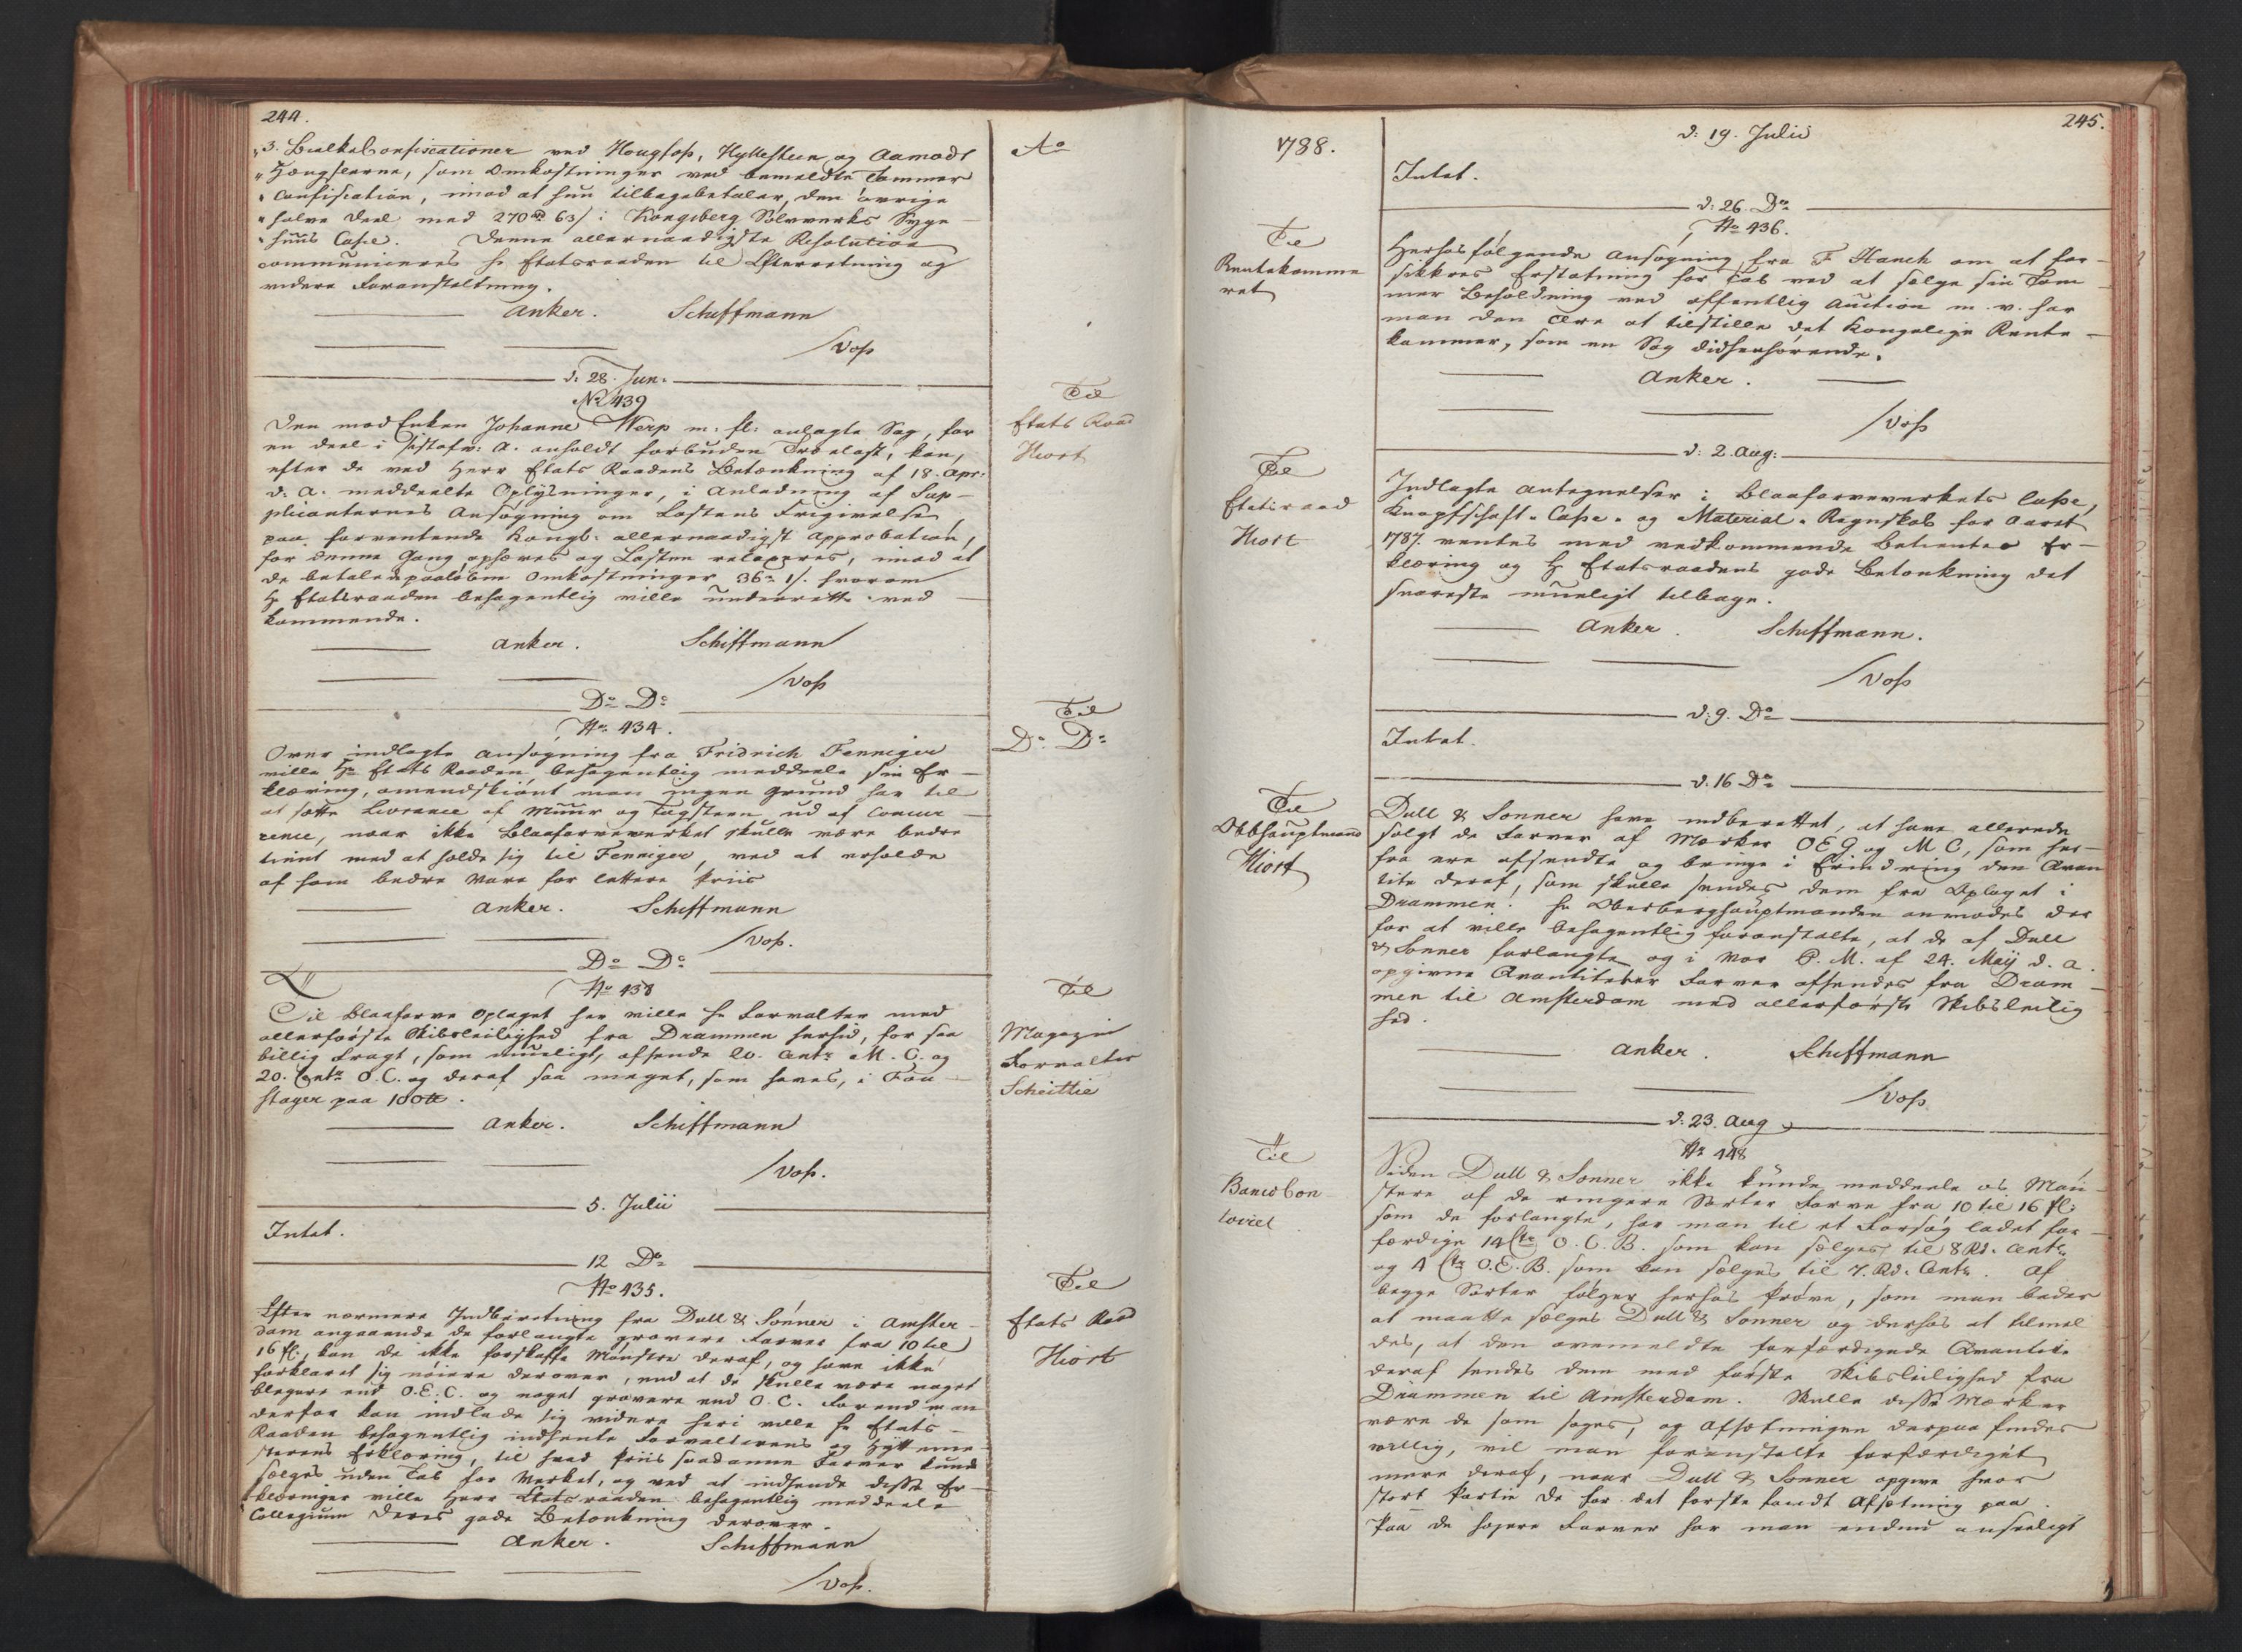 244.
Ao
"3. BielkeConfiscationer ved Hougfoss, Hyllesteen og Aamodt
"Hængslerne, som Omkostninger ved bemeldte Tømmer
"Confiscation, imod at hun tilbagebetaler, den øvrige
"halve Deel med 270 rd 63 s i Kongsberg Sølvverks Syge
"huus Casse. Denne allernaadigste Resolution
communiceres Hr Etatsraaden til Efterretning og
videre Foranstaltning.
Anker. Schiffmann
/Voss
d: 28. Jun.
No 439
Til
Etats Raad
Hiort
Den mod Enken Johanne Werp m: fl: anlagte Sag, for
en deel i sistafv: A. anholdt forbuden Trælast, kan,
efter de ved Herr Etats Raadens Betænkning af 18. Apr:
d: A. meddeelte Oplysninger, i Anledning af Sup-
plicanternes Ansøgning om Lastens Frigivelse
paa forventende Kongl: allernaadigst Approbation,
for denne Gang ophæves og Lasten relaxeres, imod at
de betale paaløbne Omkostninger 36 rd 1 s. hvorom
Hr Etatsraaden behagentlig ville underrette ved-
kommende.
Anker. Schiffmann
/Voss
Do Do
No 434.
Til
Do Do
Over indlagte Ansøgning fra Fridrich Fenniger
ville Hr Etats Raaden behagentlig meddeele sin Er-
klæring, omendskiønt man ingen Grund har til
at sætte Leverance af Muur og Tagsteen ud af Concur-
rence, naar ikke Blaafarveverket skulle være bedre
tient med at holde sig til Fenniger, ved at erholde
af ham bedre Vare for lettere Priis
Anker. Schiffmann
/Voss.
Do Do
No 438
Til
Magazin
Forvalter
Scheitlie
Til Blaafarve Oplaget her ville Hr Forvalter med
allerførste Skibsleilighed fra Drammen herhid, for saa
billig Fragt, som mueligt, afsende 20. Centr M. C. og
20. Centr O. C. og deraf saa meget, som haves, i Fou-
stager paa 100 tt.
Anker. Schiffmann
/Voss.
5. Julii
Intet.
12 Do
No 435.
Til
Etats Raad
Hiort
Efter nærmere Indberetning fra Dull & Sønner i Amster-
dam angaaende de forlangte grovere Farver fra 10 til
16 fl. kan de ikke forskaffe Mønstre deraf, og have ikke
forklaret sig nøiere derover, end at de skulle være noget
blegere end O. E. C. og noget grovere end O. C. Forend man
derfor kan indlade sig videre heri ville Hr Etats-
Raaden behagentlig indhente Forvalterens og Hytteme-
sterens Erklæring, til hvad Priis saadanne Farver kunde
sælges uden Tab for Verket, og ved at indsende disse Er-
klæringer ville Herr Etatsraaden behagentlig meddeele
Collegium Deres gode Betænkning derover.
Anker. Schiffmann
/Voss.
1788.
245.
d: 19. Julii
Intet.
d: 26. Do
No 436.
Til
Rentekamme
ret
Herhos følgende Ansøgning fra F Hanch om at for-
sikkres Erstatning for Tab ved at sælge sin Tøm-
mer Beholdning ved offentlig Auction m. v. har
man den Ære at tilstille det Kongelige Rente-
kammer, som en Sag didhenhørende.
Anker.
/Voss
d: 2. Aug:
Til
Etatsraad
Hiort
Indlagte Antegnelser i Blaafarveverkets Casse,
Knapschaft-Casse- og Material-Regnskab for Aaret
1787. ventes med vedkommende Betientes Er-
klæring og Hr Etatsraadens gode Betænkning det
snareste mueligt tilbage.
Anker. Schiffmann.
/Voss
d: 9. Do
Intet.
d. 16 Do
Til
Obbhauptmand
Hiort
Dull & Sønner have indberettet, at have allerede
solgt de Farver af Mærker O E G og M C, som her-
fra ere afsendte og bringe i Erindring den Qvan
titet deraf, som skulle sendes dem fra Oplaget i
Drammen. Hr Oberberghauptmanden anmodes der
for at ville behagentlig foranstalte, at de af Dull
& Sønner forlangte og i vor P. M. af 24. Maij d. A.
opgivne Qvantiteter Farver afsendes fra Dram-
men til Amsterdam med allerførste Skibsleilig
hed.
Anker. Schiffmann
/Voss
d: 23. Aug
No 448
Til
Banco Con
toiret
Siden Dull & Sønner ikke kunde meddeele os Møn-
stere af de ringere Sorter Farve fra 10 til 16 fl:
som de forlangte, har man til et Forsøg ladet for-
færdige 14 Ctr O. C. B. som kan sælges til 8 Rd. Centr.
og 4 Ctr O. E. B. som kan sælges til 7. Rd. Centr. Af
begge Sorter følger herhos Prøve, som man beder
at maatte sælges Dull & Sønner og derhos at tilmel
des, at den ovenmeldte forfærdigede Qvantite
deraf sendes dem med første Skibsleilighed fra
Drammen til Amsterdam. Skulle disse Mærker
være de som søges, og Afsætningen derpaa findes
villig, vil man foranstalte forfærdiget
mere deraf, naar Dull & Sønner opgive hvor
stort Partie de har det første fandt Afsetning paa.
Paa de høyere Farver har man endnu anseeligt